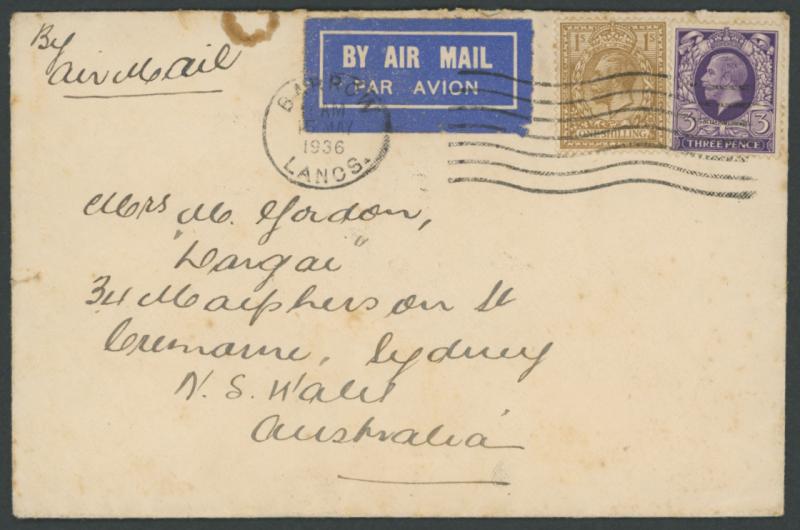 By
Air Mail
BY AIR MAIL
PAR AVION
1S 1S
ONE SHILLING
3 3
THREE PENCE
BARROW
AM
15 MAY
1936
LANCS.
Mrs M. Gordon,
"Dargai"
34 Macpherson St
Cremorne, Sydney
N. S. Wales
Australia